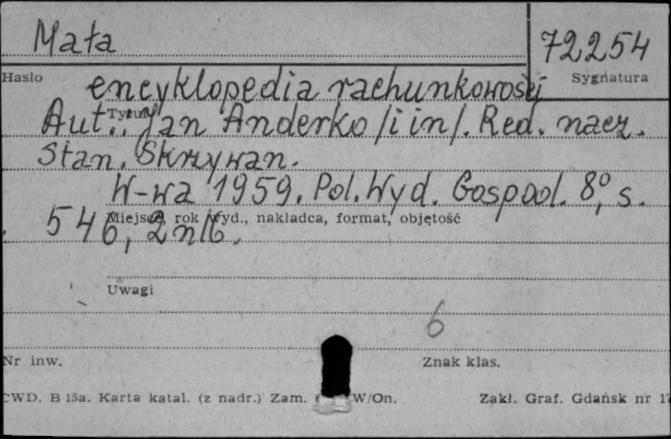 Mała
72254
Hasło
Sygnatura
encyklopedia rachunkowości
Tytuł
Aut.: Jan Anderko /i in/. Red. nacz.
Stan. Skrzywan.
W-wa 1959. Pol. Wyd. Gospod. 8°, s.
Miejsce, rok wyd., nakładca, format, objętość
546, 2 nlb.
Uwagi
6
Nr inw.
Znak klas.
CWD. B 15a. Karta katal. (z nadr.) Zam. W/On.
Zakł. Graf. Gdańsk nr